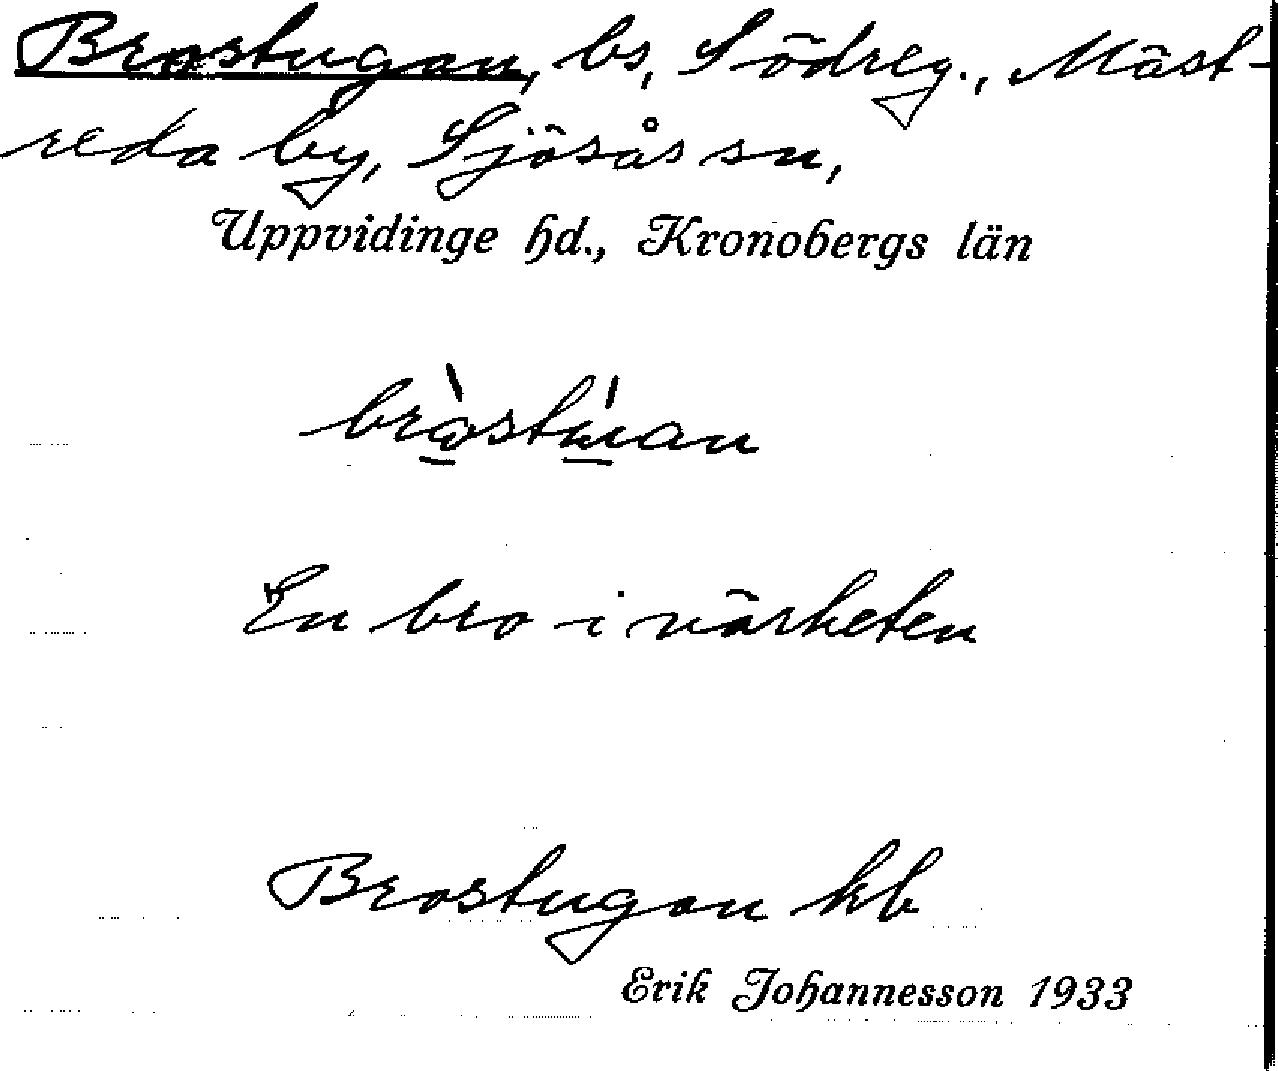 Brostugan, bs, Södreg., Mäst-
reda by, Sjösås sn,
Uppvidinge hd., Kronobergs län
En bro i närheten
Brostugan kb
Erik Johannesson 1933